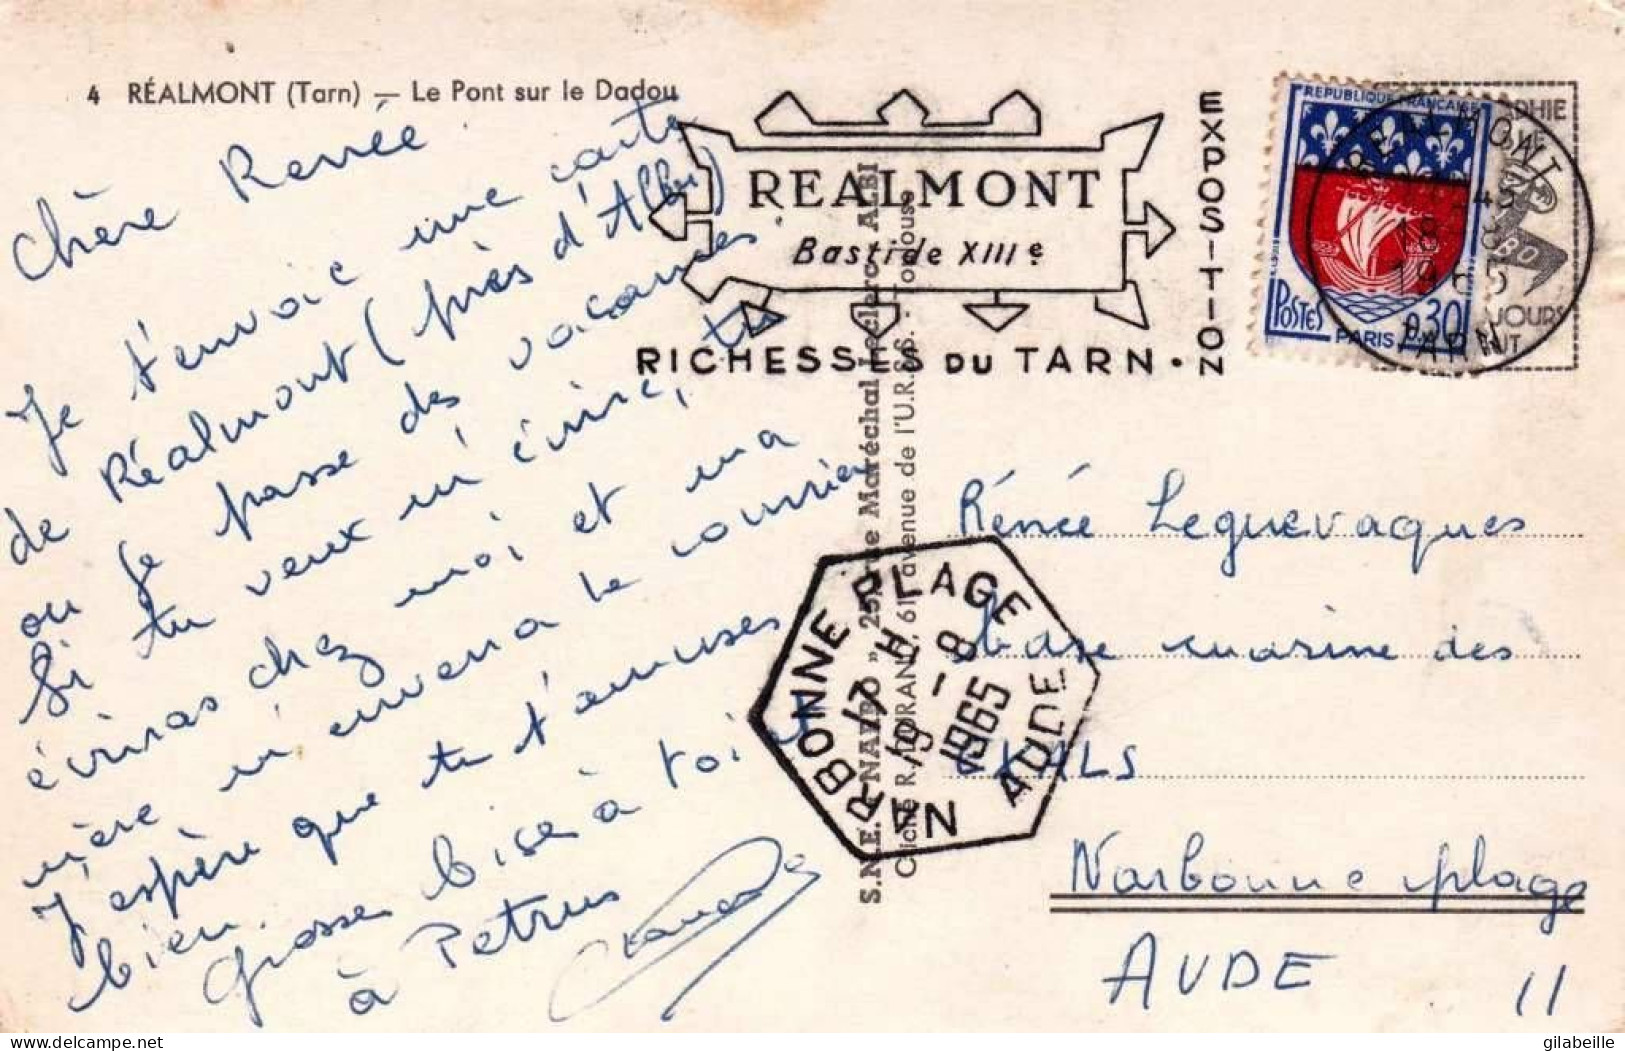 4 RÉALMONT (Tarn) — Le Pont sur le Dadou
Chère Renée
Je t'envoie une carte
de Réalmont (près d'Albi)
ou je passe des vacances
Si tu veux m'écrire, tu
écriras chez moi et ma
mère m'enverra le courrier
J'espère que tu t'amuses
bien.
Grosses bises à toi et
à Petrus
REALMONT
Bastide XIIIe
RICHESSES DU TARN •
EXPOSITION
REPUBLIQUE FRANCAISE
POSTES
0.30
PARIS
REALMONT
18 - 8
1965
TARN
S.N.E. 25, rue Maréchal Leclerc ALBI
61, avenue de l'U.R.S.S. - Toulouse
NARBONNE PLAGE
17 H
19 - 8
1965
AUDE
Rénée Leguevaques
base marine des
EXALS
Narbonne plage
AUDE 11
delcampe.net
gilabeille